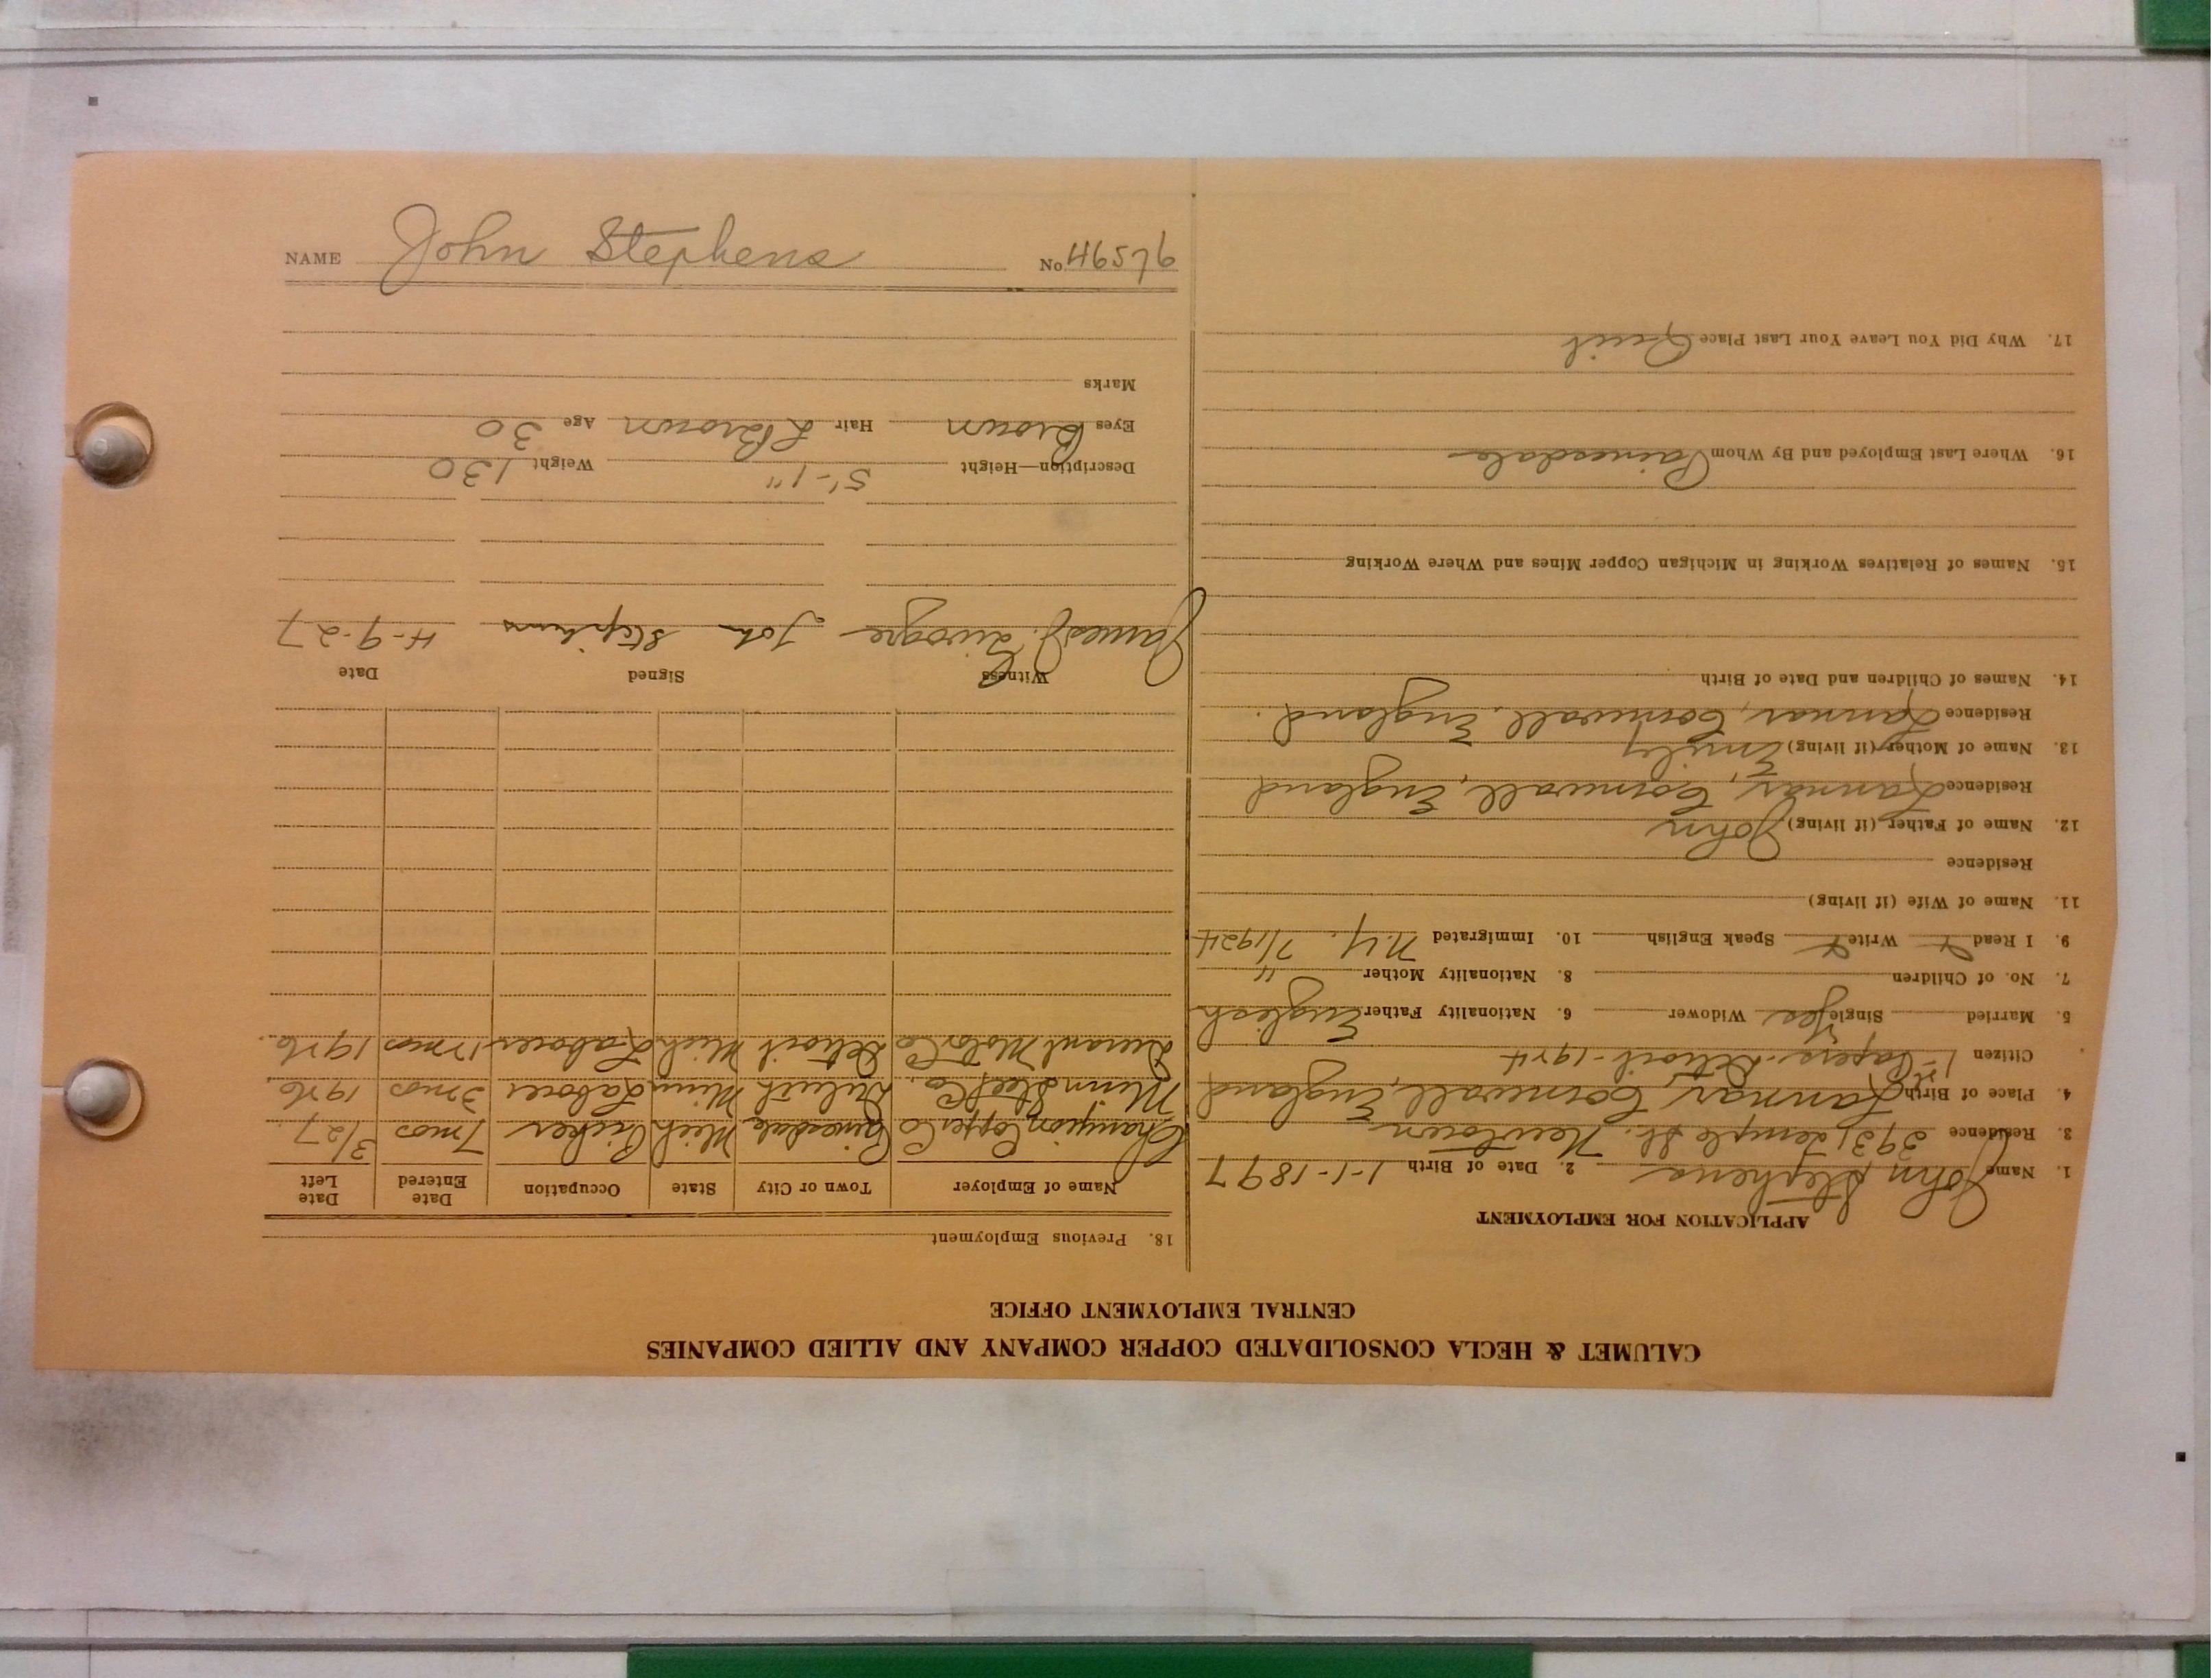 NAME John Stephens No. 46576
CALUMET & HECLA CONSOLIDATED COPPER COMPANY AND ALLIED COMPANIES
CENTRAL EMPLOYMENT OFFICE
APPLICATION FOR EMPLOYMENT
1. Name John Stephens 2. Date of Birth 1-1-1897
3. Residence 3931 Temple St. Newtown
4. Place of Birth Lannar, Cornwall, England
Citizen 1st Papers-Detroit-1924
5. Married Single Yes Widower 6. Nationality Father English
7. No. of Children 8. Nationality Mother "
9. I Read X Write X Speak English 10. Immigrated N.Y. 7/1924
11. Name of Wife (if living)
Residence
12. Name of Father (if living) John
Residence Lannar, Cornwall, England
13. Name of Mother (if living) Emily
Residence Lannar, Cornwall, England.
14. Names of Children and Date of Birth
15. Names of Relatives Working in Michigan Copper Mines and Where Working
16. Where Last Employed and By Whom Painesdale
17. Why Did You Leave Your Last Place Quit
18. Previous Employment
Name of Employer Town or City State Occupation Date Entered Date Left
Champion Copper Co Painesdale Mich Picker 7 mos 3/27
Minn Steel Co. Duluth Minn Laborer 3 mos 1926.
Durant Motor Co Detroit Mich Laborer 17 mos 1926.
Witness Signed Date
James J. John Stephens 4-9-27
Description—Height 5'-1" Weight 130
Eyes Brown Hair L Brown Age 30
Marks